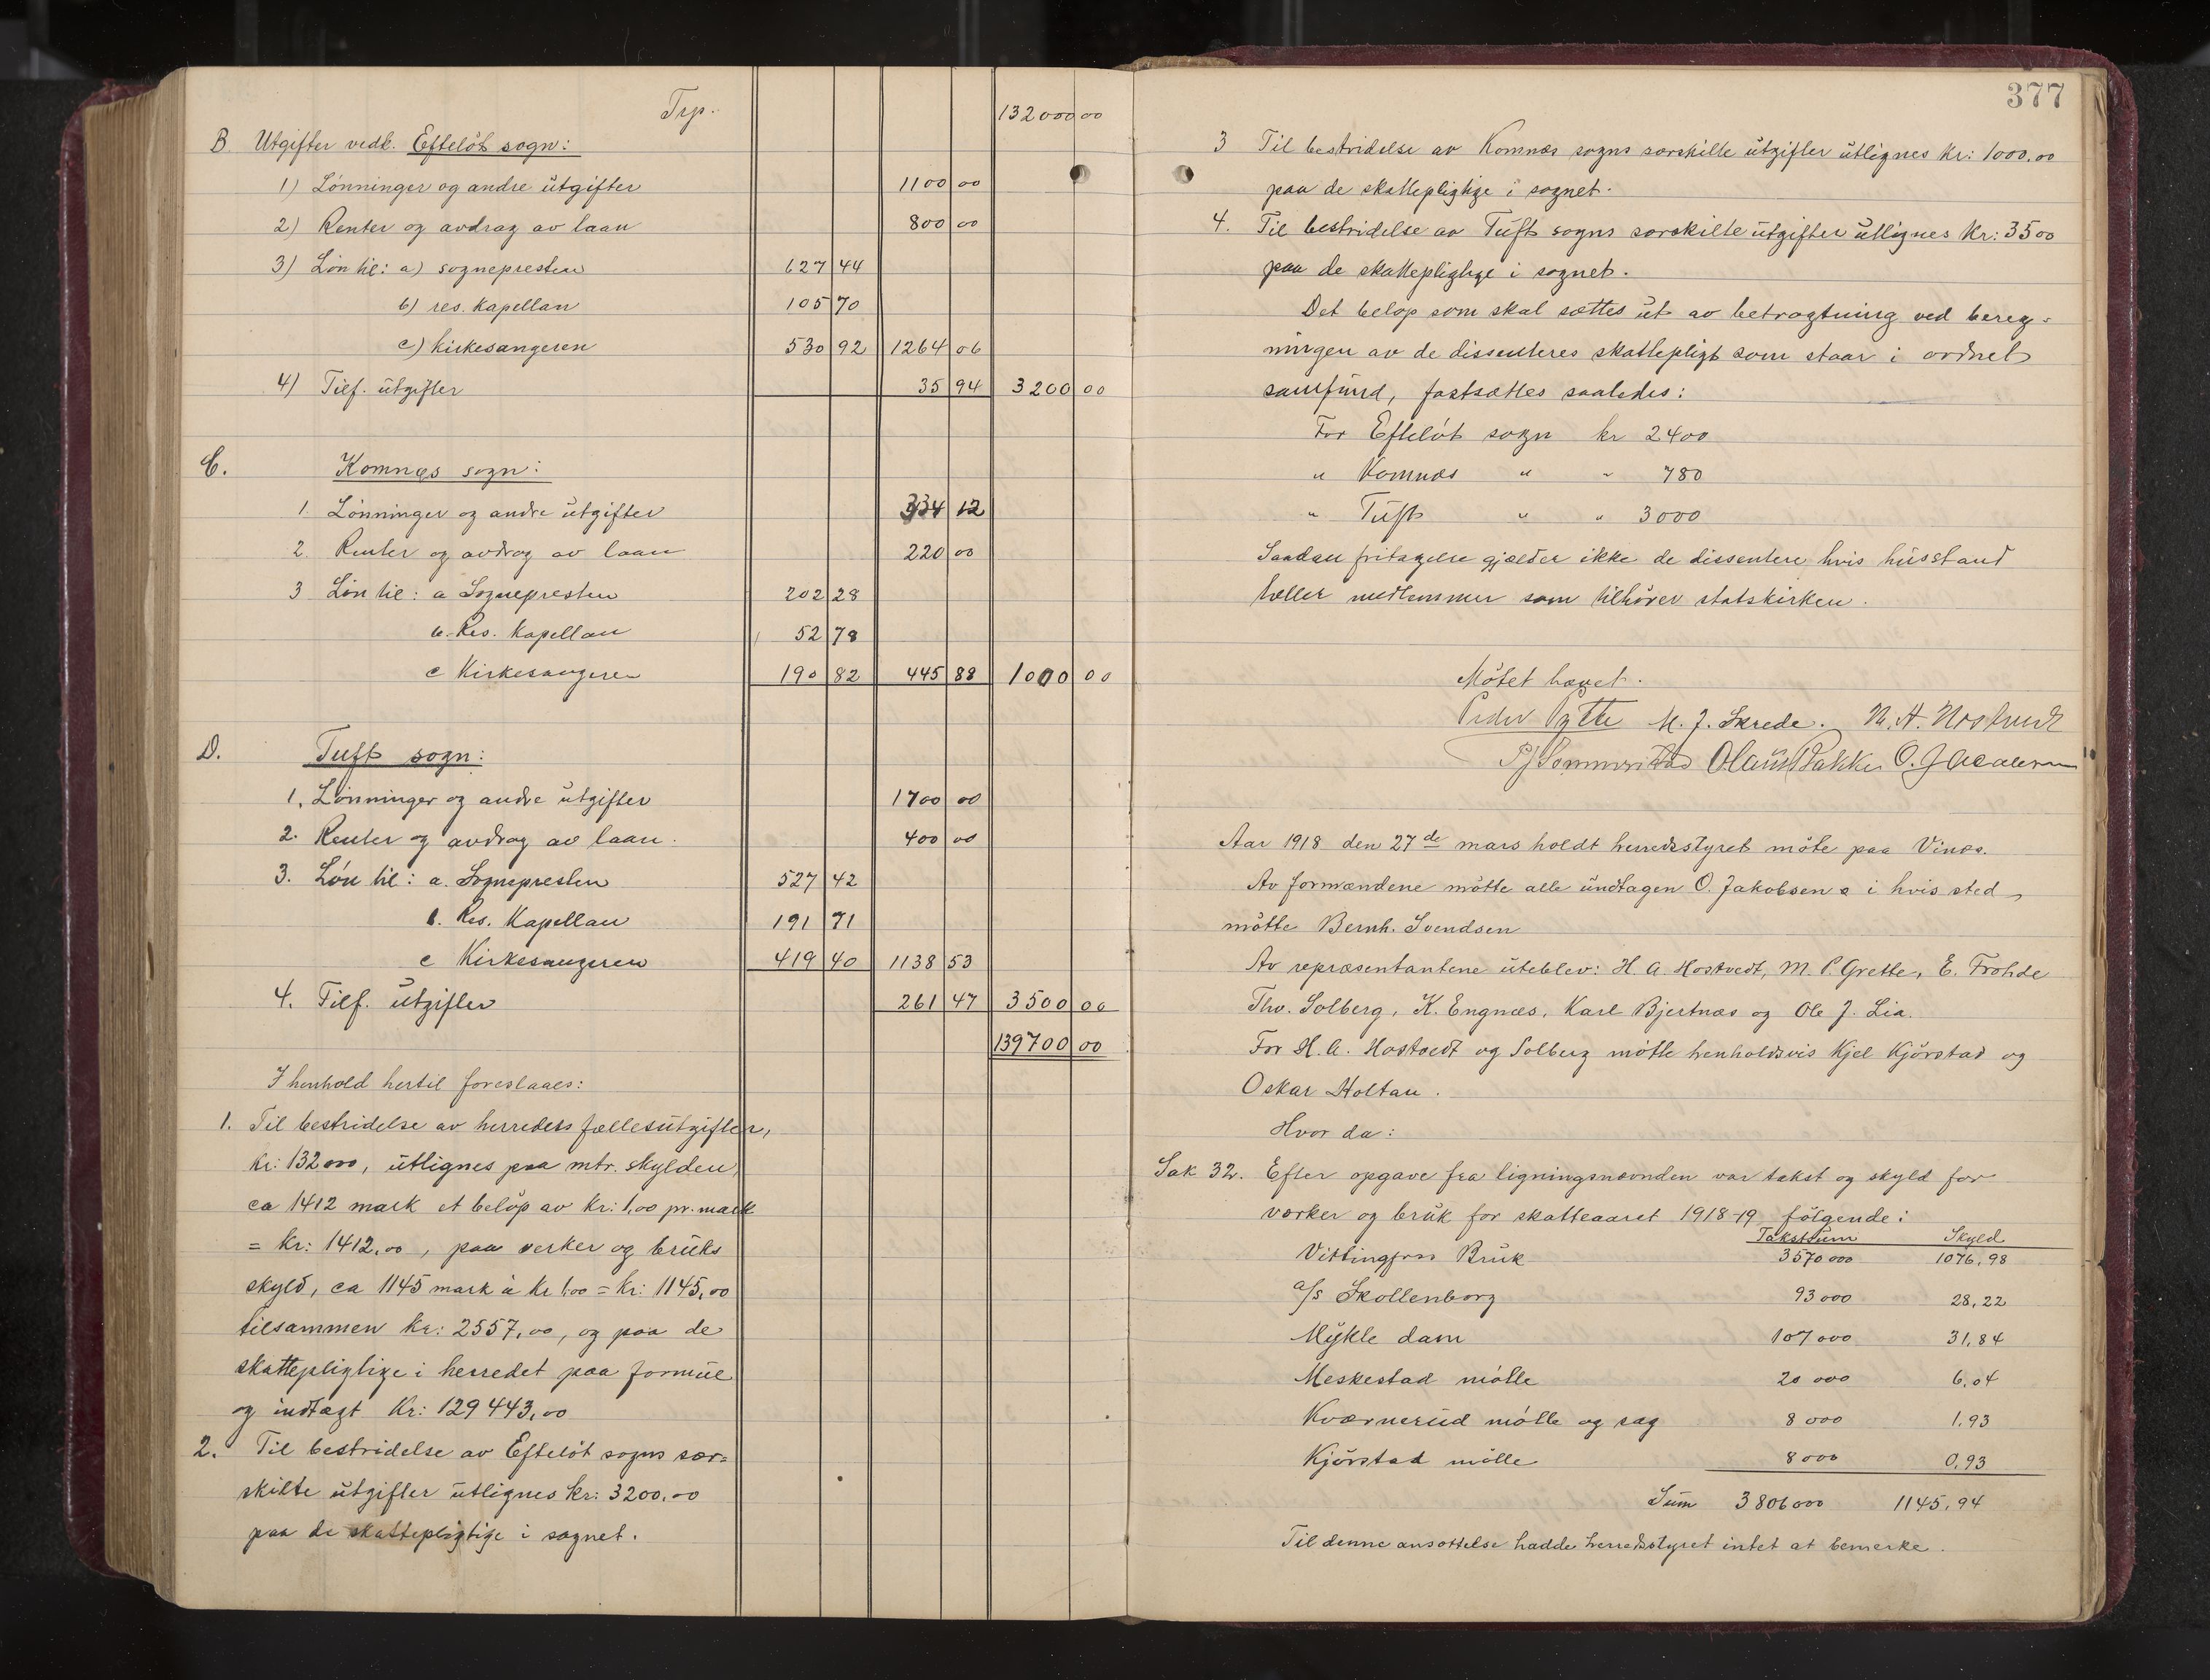 Trp. 132000 00
B. Utgifter vedk. Efteløt sogn:
1) Lønninger og andre utgifter 1100 00
2) Renter og avdrag av laan 800 00
3) Løn til: a) sognepresten 627 44
b) res. kapellan 105 70
c) kirkesangeren 530 92 1264 06
4) Tilf. utgifter 35 94 3200 00
C. Komnæs sogn:
1. Lønninger og andre utgifter 334 12
2. Renter og avdrag av laan 220 00
3 Løn til: a Sognepresten 202 28
b. Res. kapellan 52 78
c Kirkesangeren 190 82 445 88 1000 00
D. Tuft sogn:
1. Lønninger og andre utgifter 1700 00
2. Renter og avdrag av laan. 400 00
3. Løn til: a. Sognepresten 527 42
b. Res. Kapellan 191 71
c Kirkesangeren 419 40 1138 53
4. Tilf. utgifter 261 47 3500 00
139700 00
I henhold hertil foreslaaes:
1. Til bestridelse av herredets fællesutgifter,
kr: 132000, utlignes paa mtr. skylden,
ca 1412 mark et beløp av kr: 1,00 pr. mark
= kr: 1412,00, paa verker og bruks
skyld, ca 1145 mark à kr 1.00 = kr: 1145,00
tilsammen kr: 2557,00, og paa de
skattepligtige i herredet paa formue
og indtægt kr: 129443,00
2. Til bestridelse av Efteløt sogns sær=
skilte utgifter utlignes kr: 3200,00
paa de skattepligtige i sognet.
377
3 Til bestridelse av Komnæs sogns særskilte utgifter utlignes kr: 1000,00
paa de skattepligtige i sognet.
4. Til bestridelse av Tuft sogns særskilte utgifter utlignes kr: 3500
paa de skattepligtige i sognet.
Det beløp som skal sættes ut av betragtning ved bereg=
ningen av de dissenteres skattepligt som staar i ordnet
samfund, fastsættes saaledes:
For Efteløt sogn kr 2400
" Komnæs " " 780
" Tuft " " 3000
Saadan fritagelse gjælder ikke de dissentere, hvis husstand
tæller medlemmer som tilhører statskirken.
Møtet hævet.
Peder Pytte M. J. Skrede. N. A. Hostvedt
Olaus Bakke O. Jacobsen
Aar 1918 den 27de mars holdt herredsstyret møte paa Vinæs.
Av formændene møtte alle undtagen O. Jakobsen i hvis sted
møtte Bernh. Svendsen
Av repræsentantene uteblev: H. A. Hostvedt, M. P. Grette, E. Frohde
Thv. Solberg, K. Engnæs, Karl Bjertnæs og Ole J. Lia.
For H. A. Hostvedt og Solberg møtte henholdsvis Kjel Kjørstad og
Oskar Holtan.
Hvor da:
Sak 32. Efter opgave fra ligningsnævnden var takst og skyld for
verker og bruk for skatteaaret 1918-19 følgende:
Takstsum Skyld
Vittingfoss Bruk 3570000 1076,98
a/s Skollenborg 93000 28,22
Mykle dam 107000 31,84
Meskestad mølle 20000 6,04
Kværnerud mølle og sag 8000 1,93
Kjørstad mølle 8000 0,93
Sum 3806000 1145,94
Til denne ansættelse hadde herredsstyret intet at bemerke.